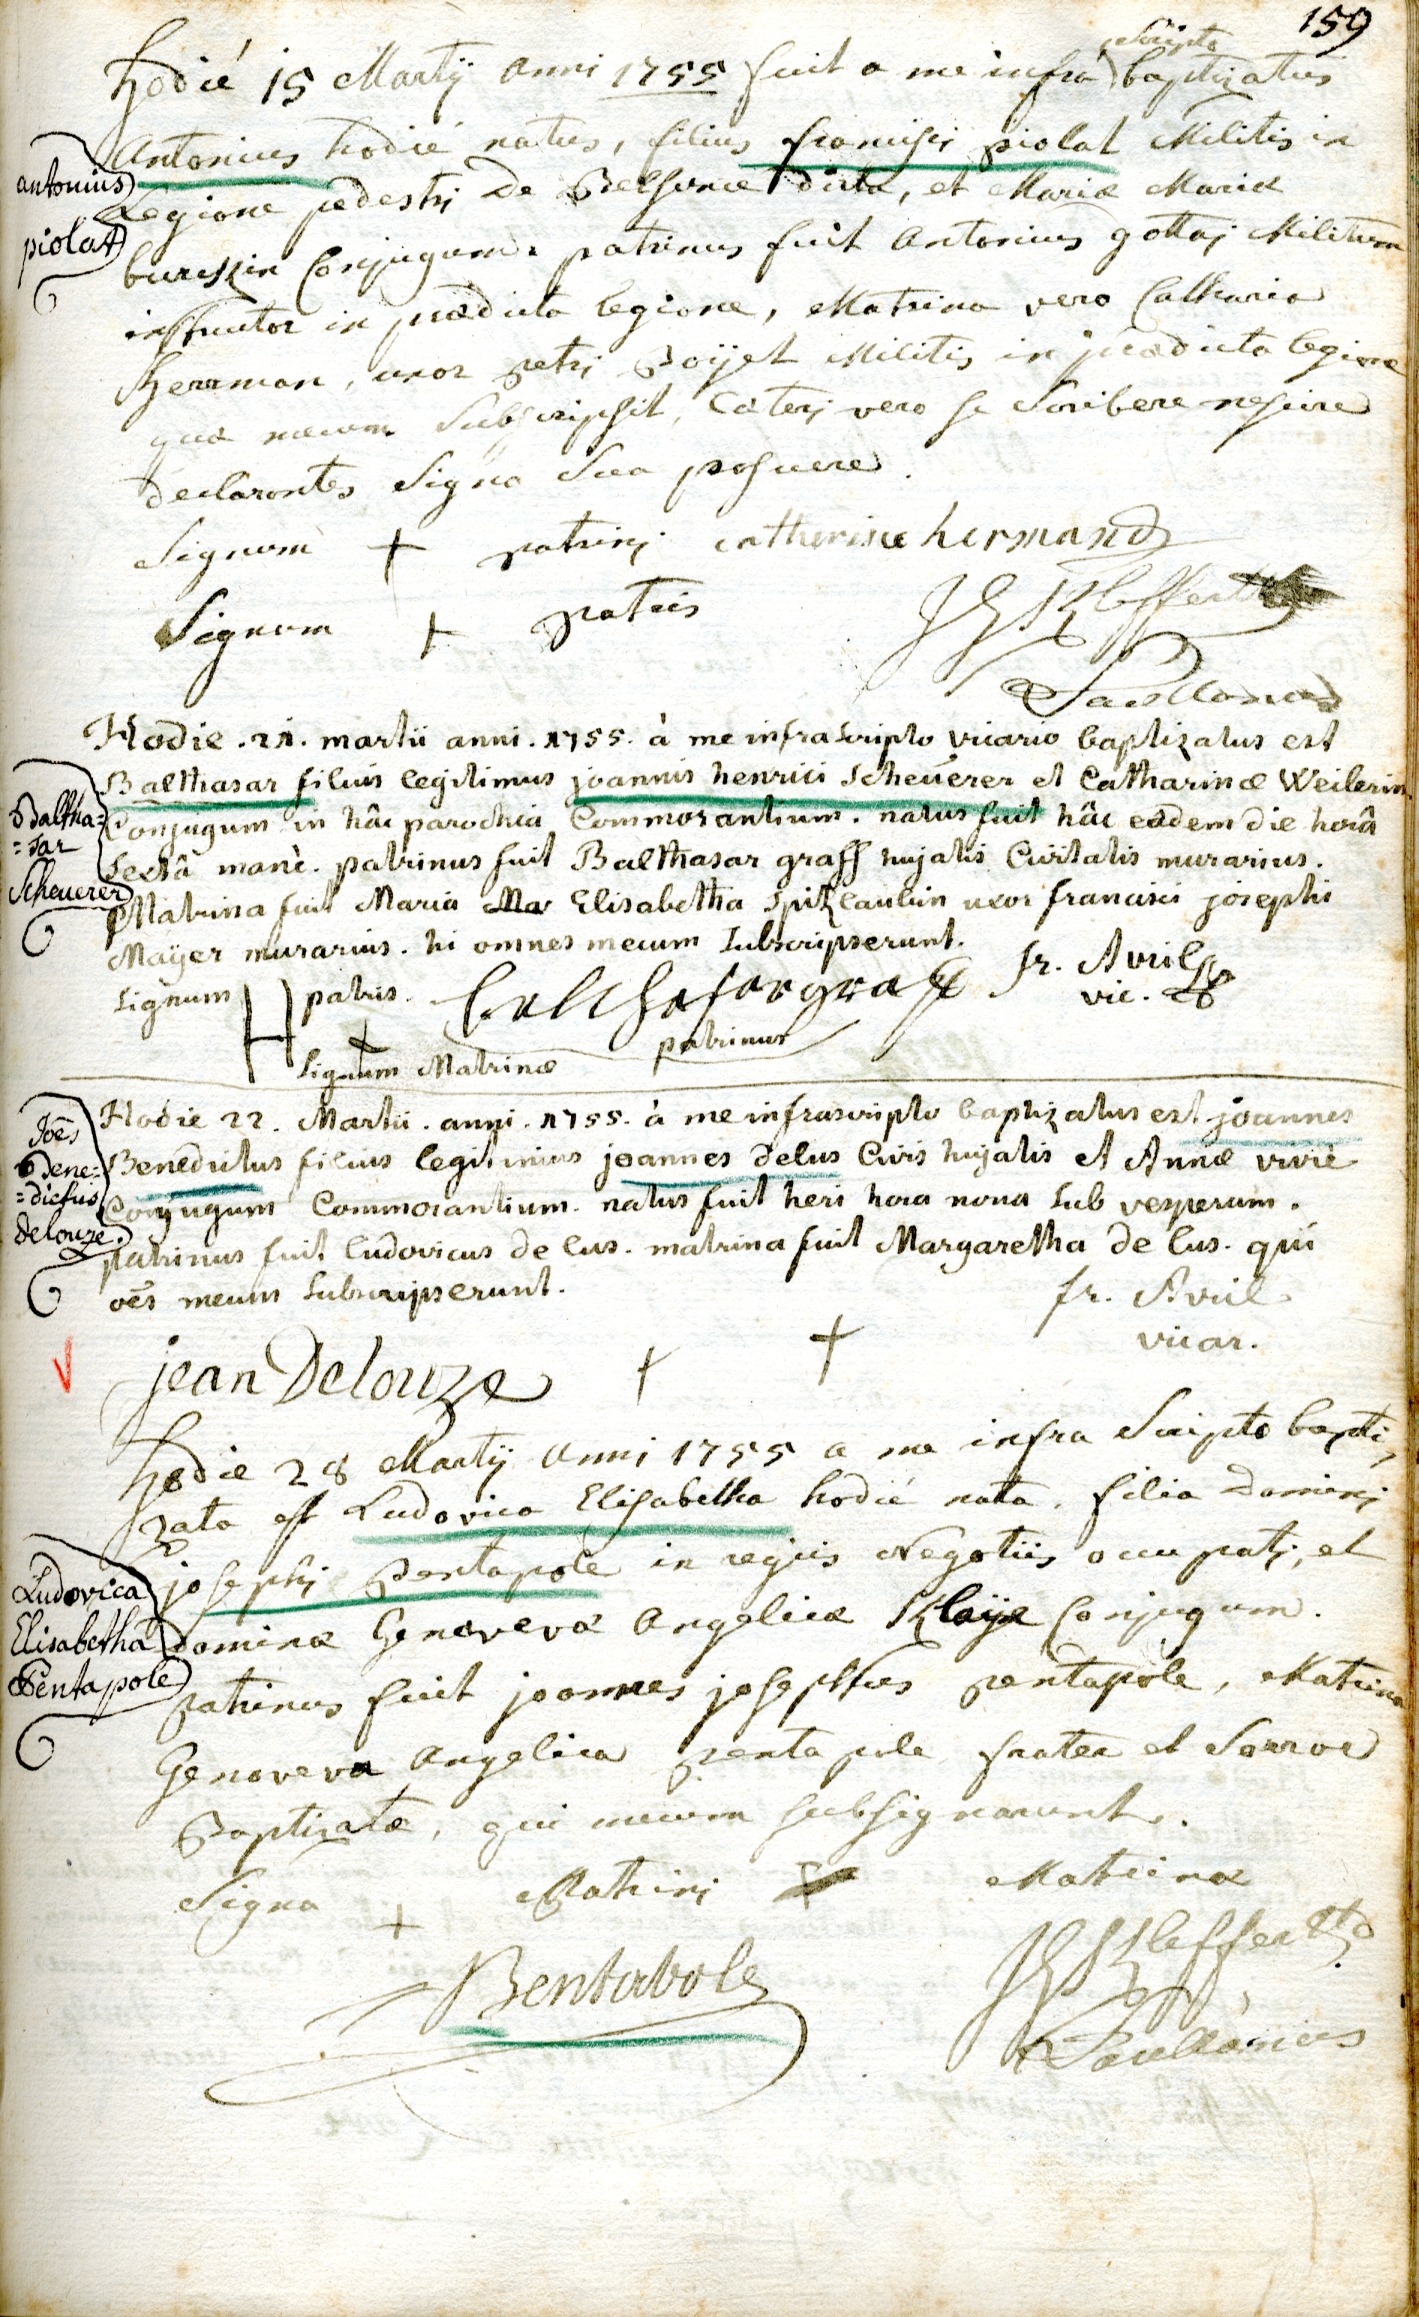 159
Hodié 15 Martÿ anni 1755 fuit a me infra Scripto baptizatus
Antonius hodié natus, filius francisci piolat Militis in
Legione pedestrj De Belsunce dicta, et Mariæ Mariæ
Conjugum. patrinus fuit Antonius gottaj Militum
instructor in prædicta legione, Matrina vero Catharia
herrman, uxor petrj Boÿet Militis in prædicta legione
quæ mecum Subscripsit, Cæterj vero se Scribere nescire
declarantes Signa Sua posuere.
antonius
piolat
Signum + patrinj catherine hermand
Signum + patris
Hodie .21. martii anni .1755. à me infrascripto vicario baptizatus est
Balthasar filius legitimus joannis henrici Scheuerer et Catharinæ Weilerin
Conjugum in hâc parochia Commorantium. natus fuit hâc eâdem die horâ
sextâ manè. patrinus fuit Balthasar graff hujatis Civitatis murarius.
Matrina fuit Maria Ma Elisabetha Spitzlaubin uxor francisci josephi
Maÿer murarius. hi omnes mecum Subscripserunt.
Baltha=
=sar
Scheuerer
fr. Avril
vic.
Signum H patris. balthasar graff
patrinus
+
Signum Matrinæ
Hodie 22. Martii. anni. 1755. à me infrascripto baptizatus est joannes
Benedictus filius legitimus joannes delus Civis hujatis et Annæ vivié
Conjugum Commorantium. natus fuit heri hora nona sub vesperum.
patrinus fuit ludovicus de lus. matrina fuit Margaretha de lus. qui
oēs mecum subscripserunt.
Joēs
Bene=
=dictus
Delouze.
fr. Avril
vicar.
jean Delouze + +
hodie 28 Martÿ anni 1755 a me infra Scripto bapti,
zata est Ludovica Elisabetha hodié nata. filia Dominj
josephj pentapole in regiis Negotiis occupatj, et
dominæ Genovevæ Angelicæ Klaÿe Conjugum.
patrinus fuit joannes josephus pentapole, Matrina
Genoveva Angelica pentapole frater et Soror
Baptizatæ, qui mecum subsignarunt.
Ludovica
Elisabetha
Pentapole
Signa + Patrinj + Matrinæ
Bentabole